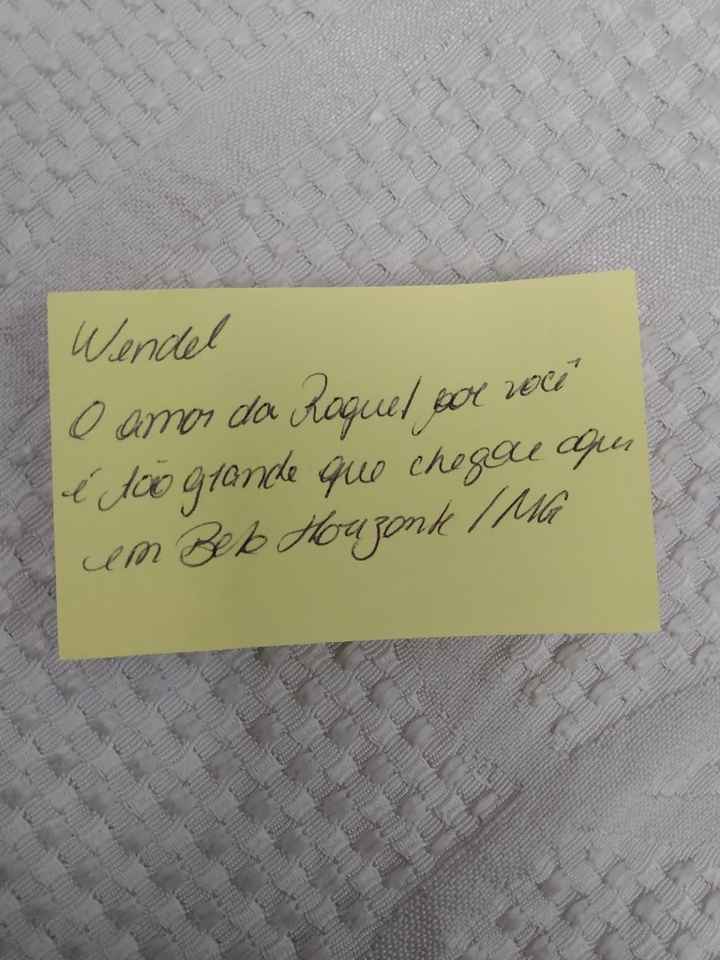 Wendel
O amor da Raquel por você
é tão grande que chegou aqui
em Belo Horizonte / MG